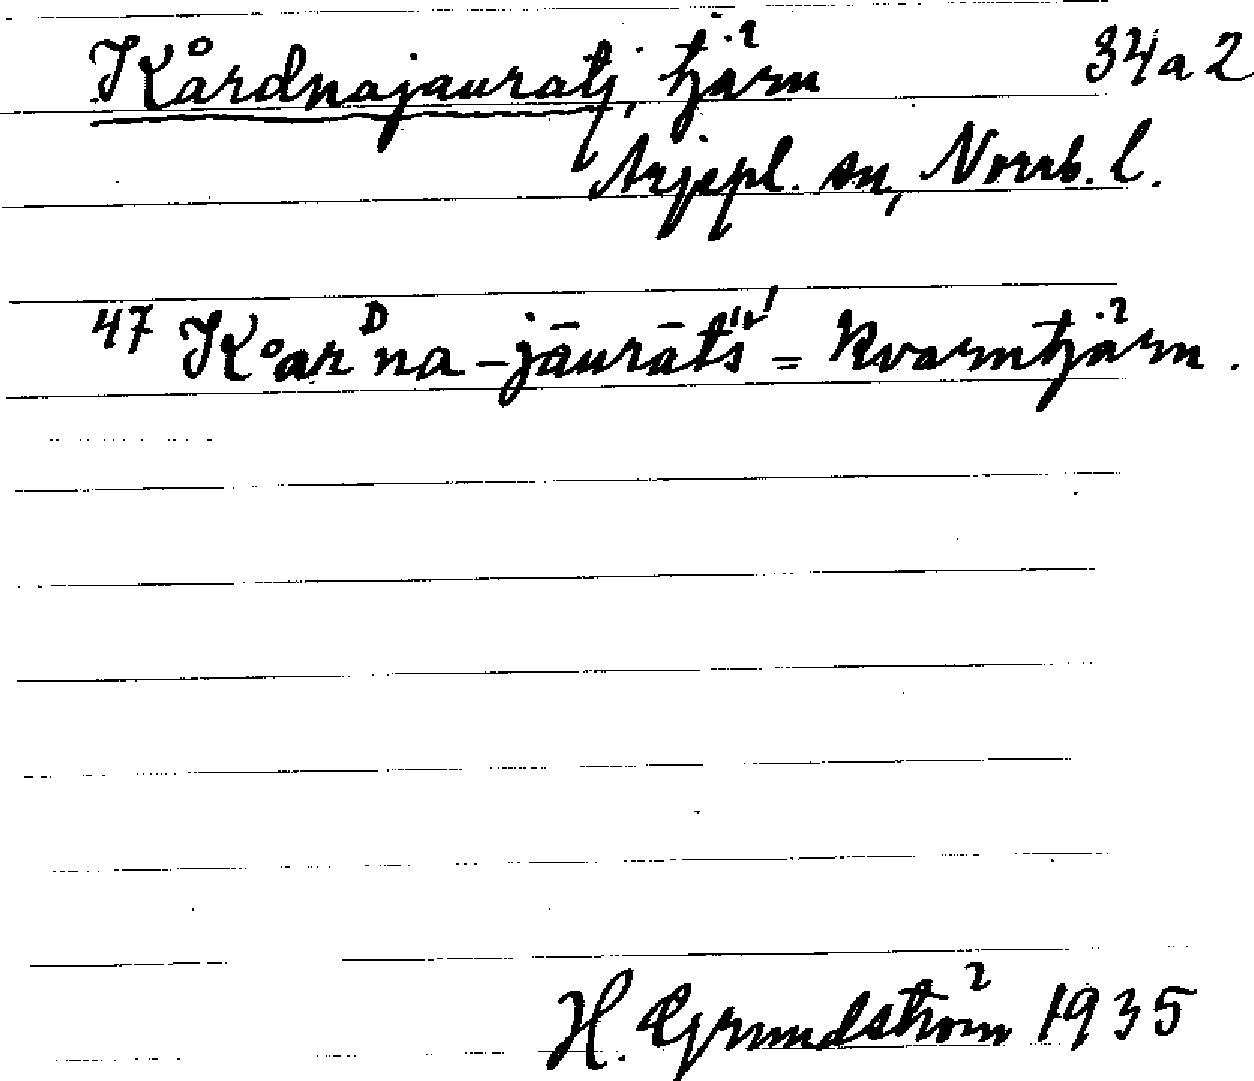 Kårdnajauratj, tjärn 34a2
Arjepl. sn, Norrb. l.
47 K°arᴰna-jāurāts´ = kvarntjärn.
H. Grundström 1935